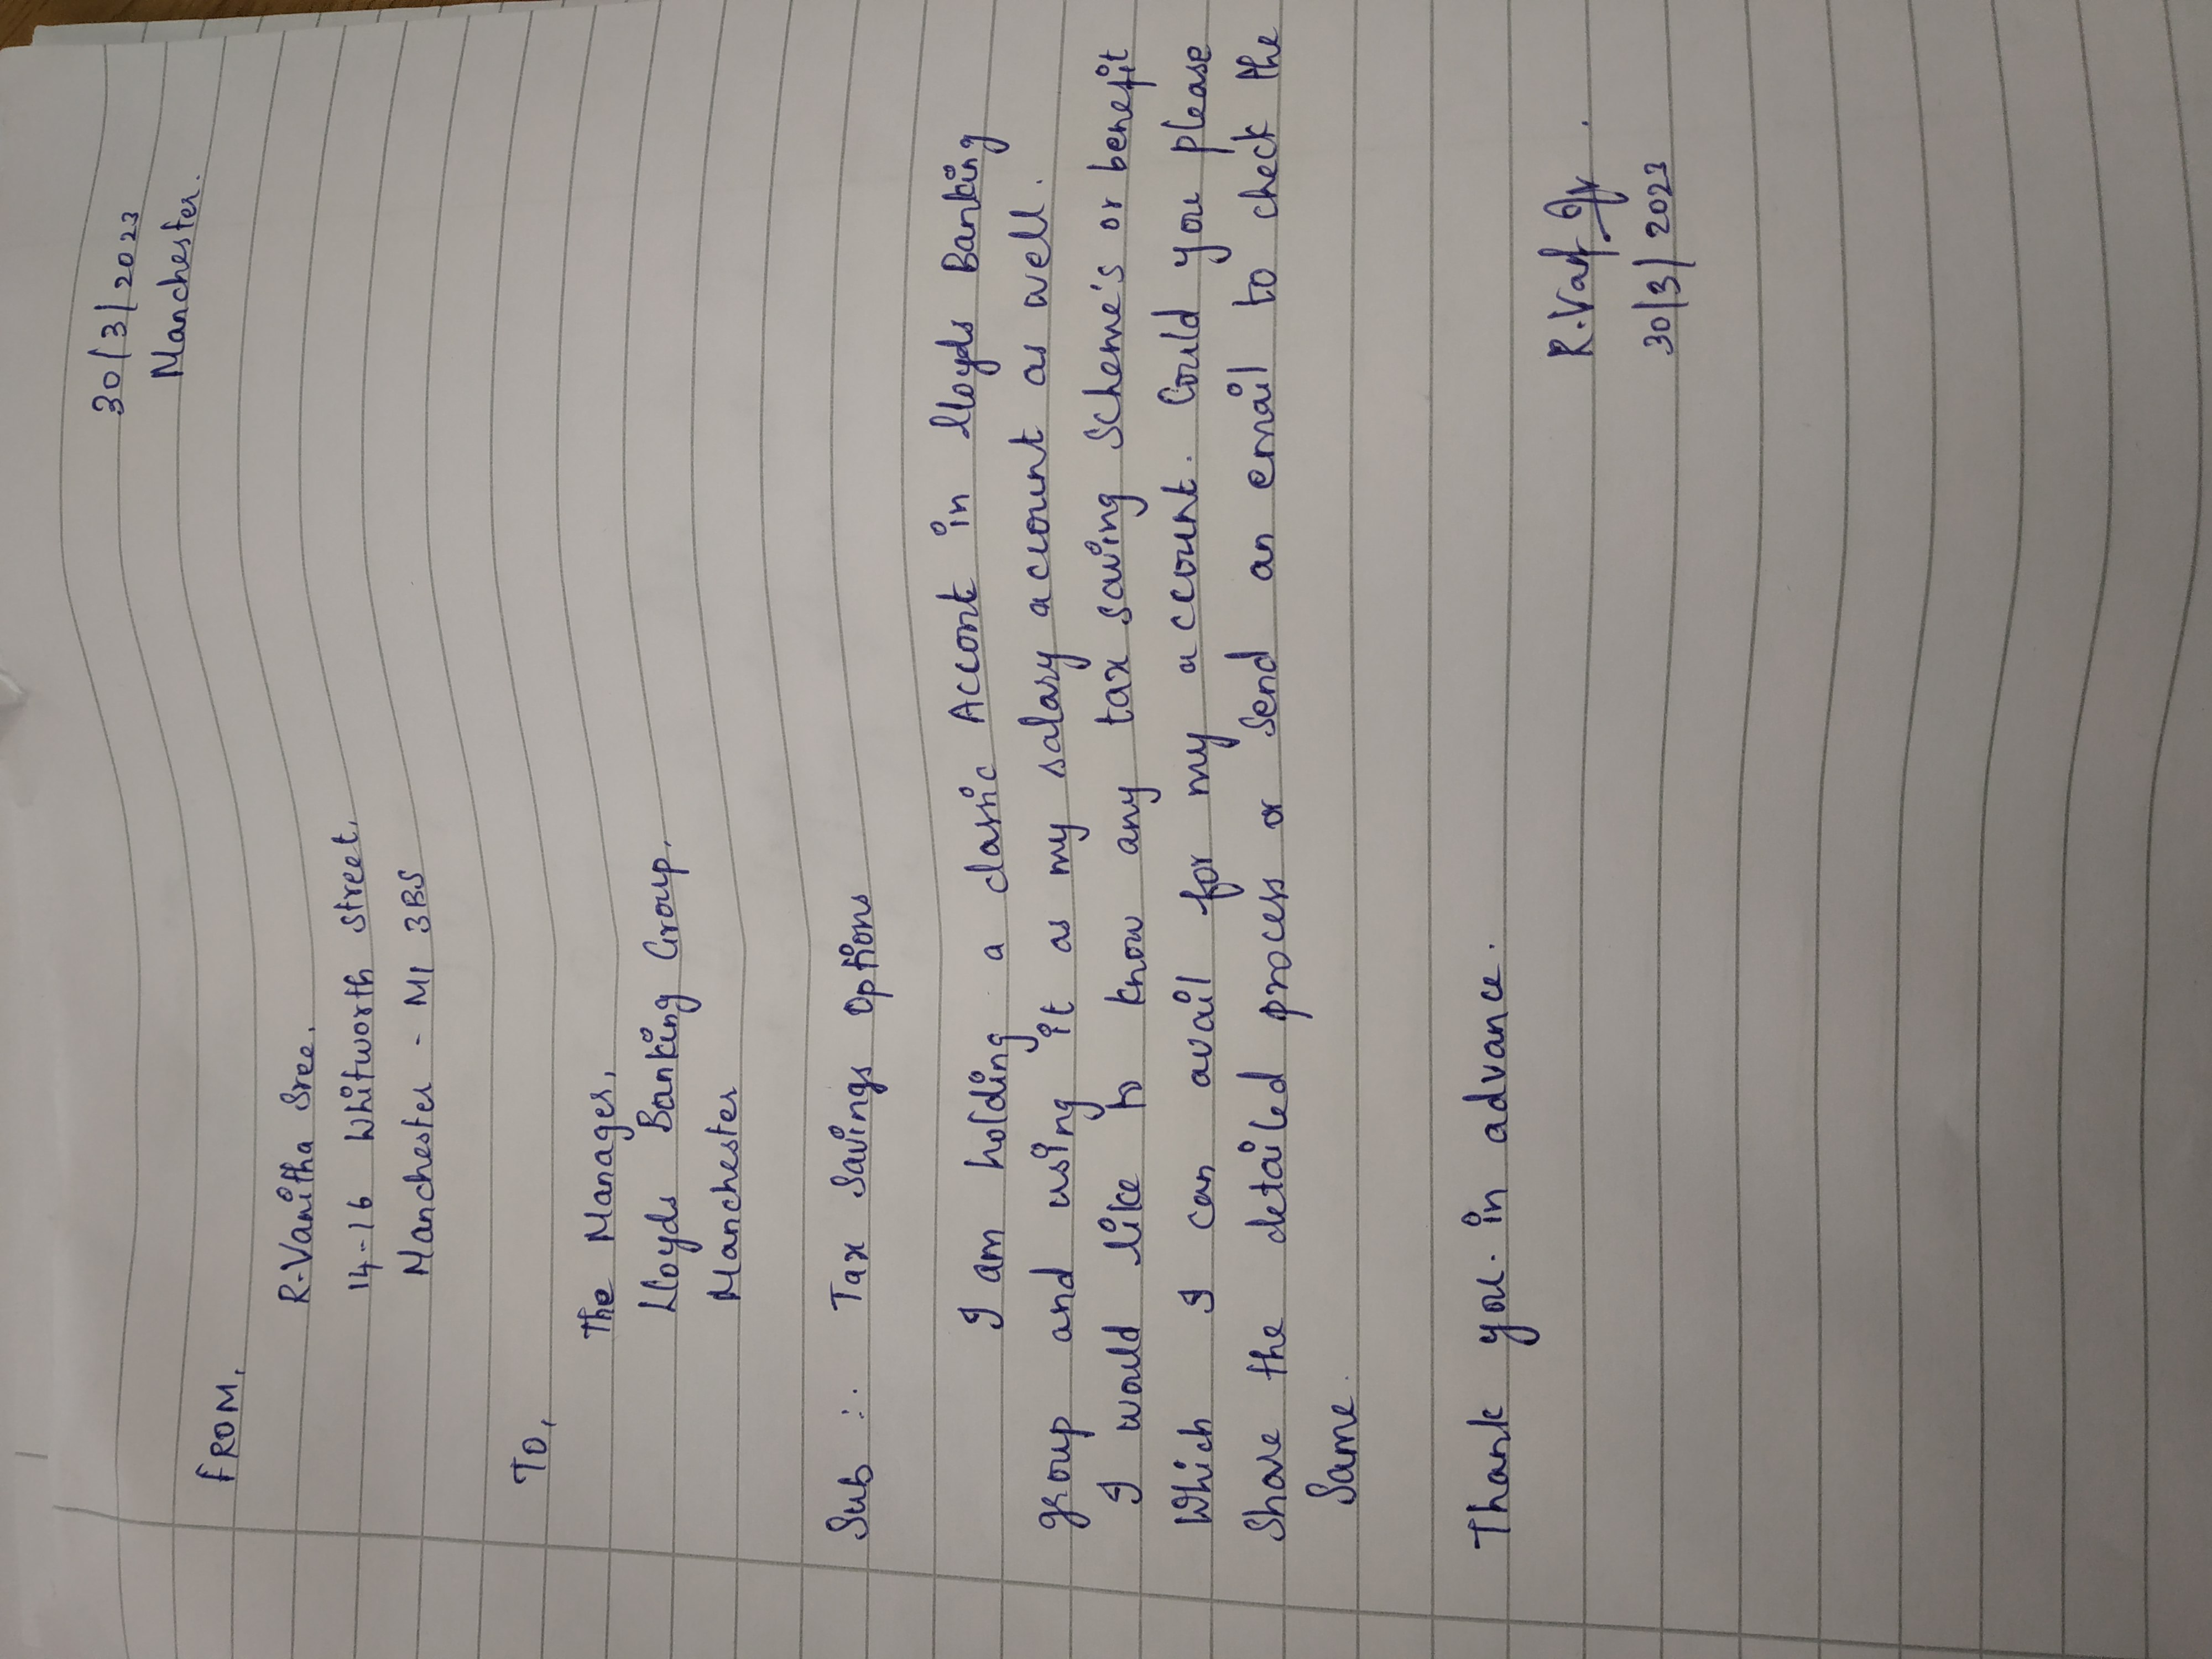 30/3/2023
Manchester.
FROM,
R.Vanitha Sree.
14-16 Whitworth street,
Manchester - M1 3BS
TO,
The Manager,
Lloyds Banking Group.
Manchester
Sub :. Tax Savings Options
I am holding a classic Accont in lloyds Banking
group and using it as my salary account as well.
I would like to know any tax saving Scheme's or benefit
Which I can avail for my account. Could you please
Share the detailed process or Send an email to check the
Same.
Thank you. in advance.
30/3/2023